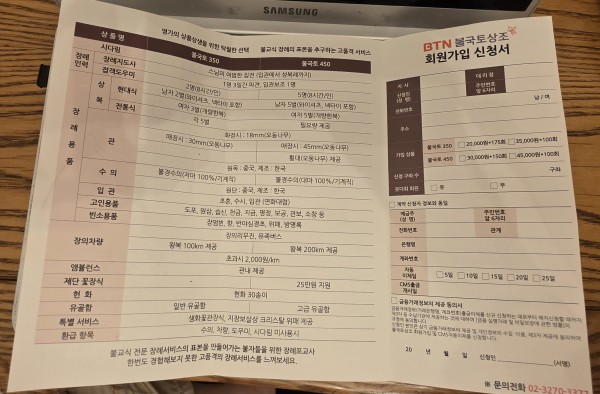 SAMSUNG
영가의 상품상생을 위한 탁월한 선택
불교식 장례의 표본을 추구하는 고품격 서비스
상 품 명
불국토 350
불국토 450
시다림
스님의 여법한 집전 (입관에서 성복제까지)
장례인력
장례지도사
1명 3일간 파견, 입관보조 1명
접객도우미
2명(8시간/인)
5명(8시간/인)
장례용품
상복
현대식
남자 2벌(와이셔츠, 넥타이 포함)
남자 5벌(와이셔츠, 넥타이 포함)
여자 3벌(개량한복)
여자 5벌(개량한복)
전통식
각 5벌
필요량 제공
관
화장시 : 18mm(오동나무)
매장시 : 30mm(오동나무)
매장시 : 45mm(오동나무)
-
횡대(오동나무) 제공
수 의
원목 : 중국, 제조 : 한국
불경수의(저마 100%/기계직)
불경수의(대마 100%/기계직)
원단 : 중국, 제조 : 한국
입 관
초혼, 수시, 입관 (연화대렴)
고인용품
도포, 원삼, 습신, 천금, 지금, 명정, 보공, 관보, 소창 등
빈소용품
향, 반야심경초, 위패, 방명록
장의차량
장의리무진, 유족버스
왕복 100km 제공
왕복 200km 제공
초과시 2,000원/km
앰뷸런스
관내 제공
제단 꽃장식
-
25만원 지원
헌 화
헌화 30송이
유골함
일반 유골함
고급 유골함
특별 서비스
생화꽃관장식, 지장보살상 크리스탈 위패 제공
환급 항목
수의, 차량, 도우미, 시다림 미사용시
불교식 전문 장례서비스의 표본을 만들어가는 불자들을 위한 장례포교사
한번도 경험해보지 못한 고품격의 장례서비스를 느껴보세요.
BTN 불국토상조
회원가입 신청서
지 사
대 리 점
신청인
(성 명)
주민번호
앞 6자리
전화번호
남 / 여
주소
가입 상품
불국토 350
□ 20,000원×175회 □ 35,000원×100회
불국토 450
□ 30,000원×150회 □ 45,000원×100회
신청 구좌 수
구좌
□ 유
□ 무
□ 계약 신청자 정보와 동일
예금주
(성 명)
주민번호
앞 6자리
전화번호
관계
은행명
계좌번호
자동
이체일
□ 5일 □ 10일 □ 15일 □ 20일 □ 25일
CMS출금
개시일
□ 금융거래정보의 제공 동의서
20 년 월 일 신청인 (서명)
※ 문의전화 02-3270-3377